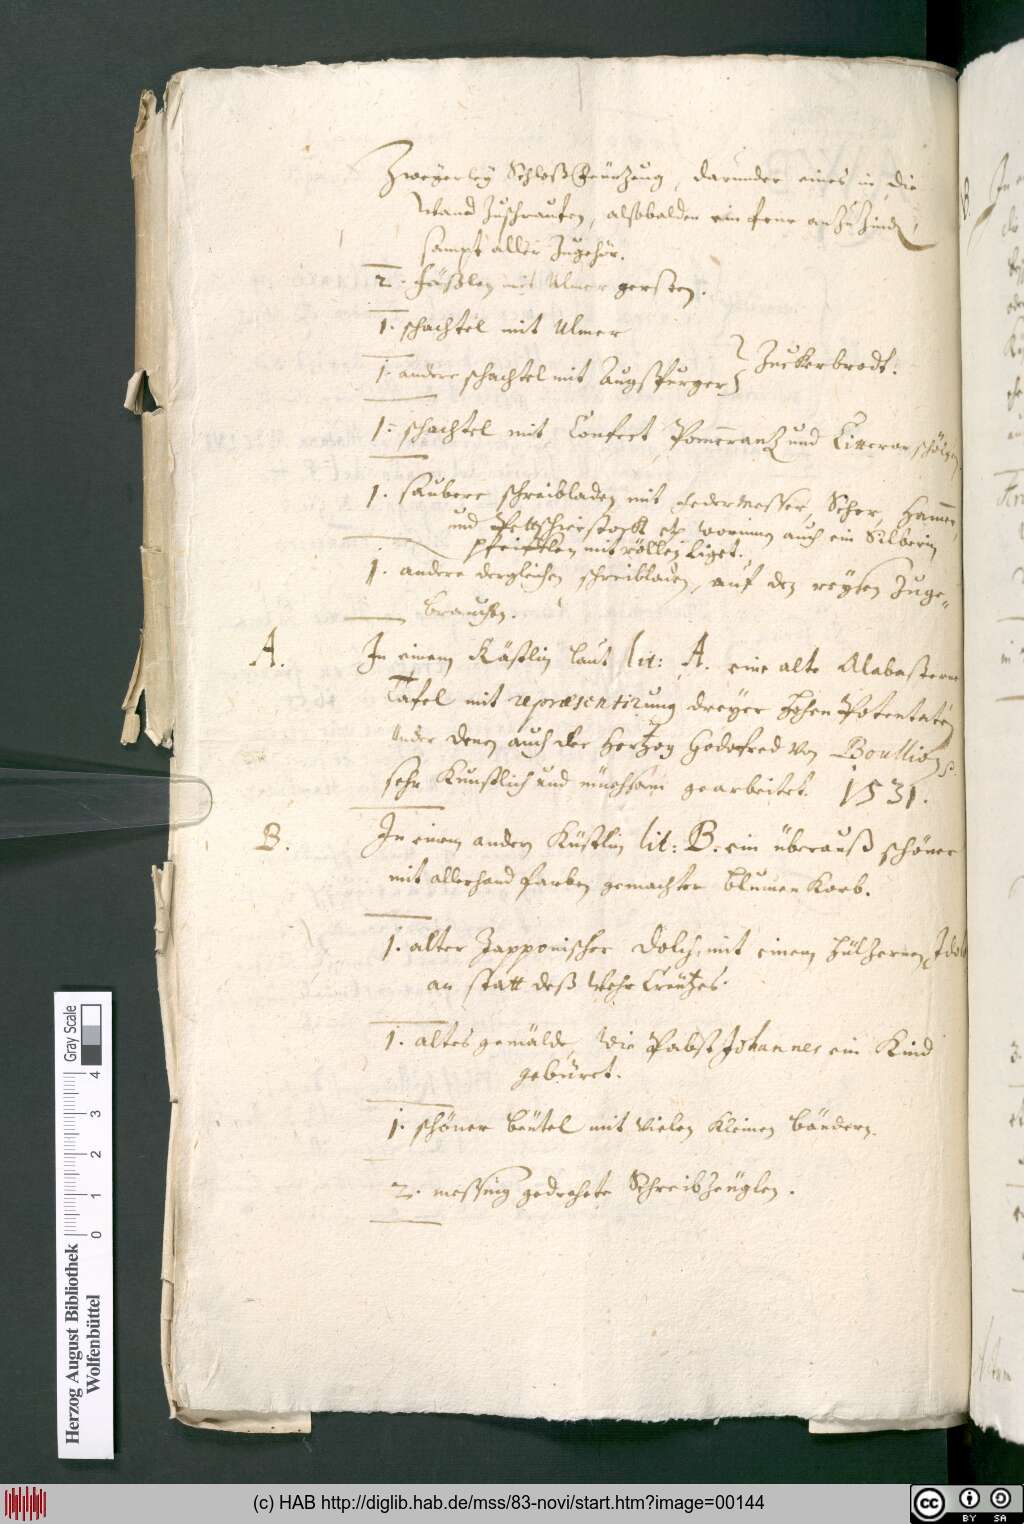 Zweyerley Schloß Feürzeug, darunder eines in die
Wand Zuschrauffen, alßbalden ein feur an Zu Zinden,
sampt aller Zugehör.
2. fäßlen mit Ulmer gersten.
1. schachtel mit Ulmer
Zuckerbrodt.
1. andere schachtel mit Augspurger
1. schachtel mit Confect Pomerantz und Citteron schölen
1. saubere schreibladen mit federmesser, Scher, Hamer,
und Pettschierstockh etc. worinnen auch ein Silberin
pfeifflen mit röllen ligt.
1. andere dergleichen schreibladen, auf den reysen Zuge-
brauchen.
A. In einem Kästlin laut lit: A. eine alte Alabasterne
Tafel mit repræsentirung dreyer hohen Potentaten
Under denen auch der Hertzog Godofred von Boullion
sehr Kunstlich und müehsam gearbeitet. 1531.
B. In einem andern Küstlin lit: B. ein überauß schöner
mit allerhand farben gemachter blumen Korb.
1. alter Japponischer Dolch, mit einem hülzernen Idolo
an statt deß Wehr Creützes.
1. altes gemälde, wie Pabst Johannes ein Kind
gebüret.
1. schöner beütel mit Vielen Kleinen bändern.
2. messing gedrehete Schreibzeüglen.
Herzog August Bibliothek
Wolfenbüttel
0 1 2 3 4
Gray Scale
(c) HAB http://diglib.hab.de/mss/83-novi/start.htm?image=00144
cc BY SA